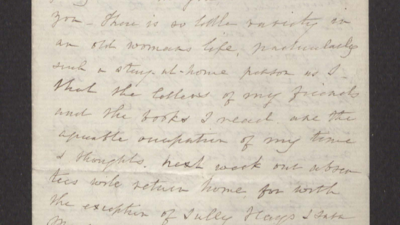 you - There is so little variety in
an old womans life, particularly
such a stay-at-home person as I -
that the letters of my friends
and the books I read are the
agreable occupation of my time
& thoughts. next week our absen
tees will return home for with
the exception of Sully Hays I